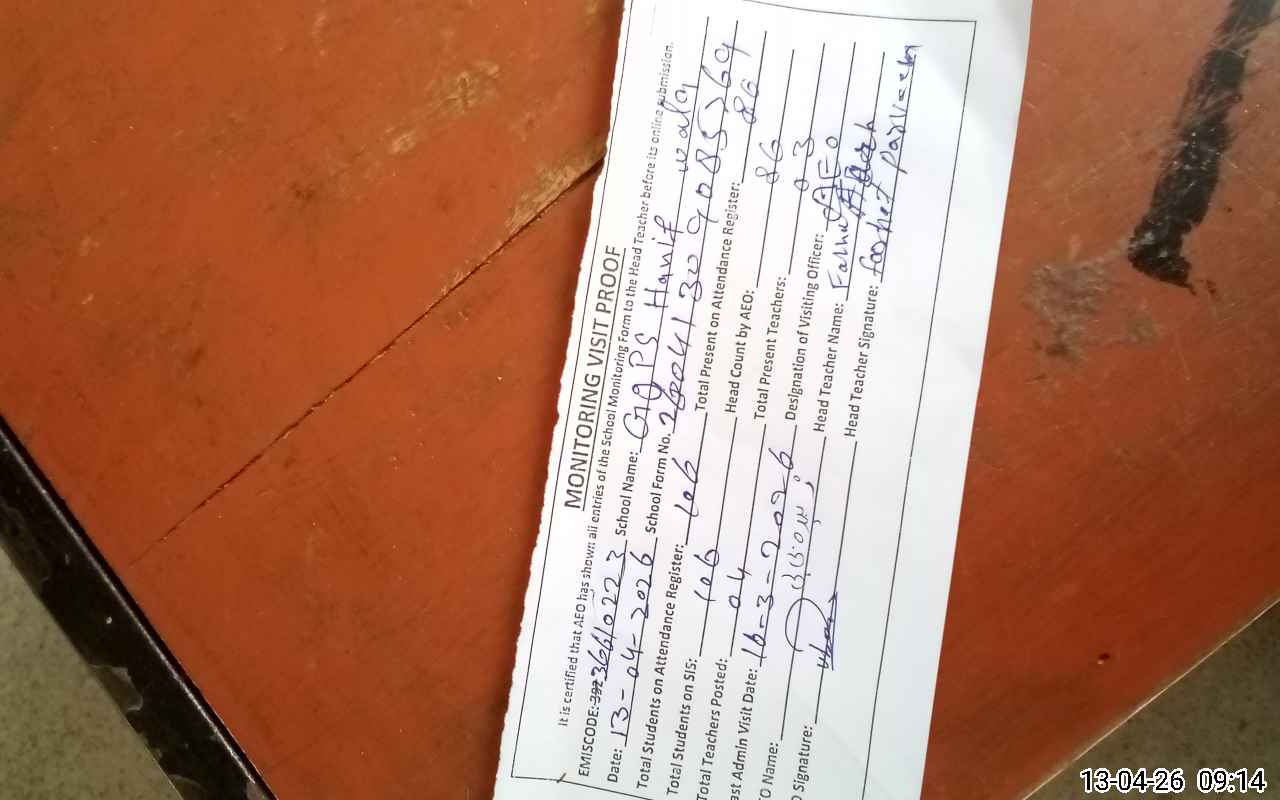 MONITORING VISIT PROOF
It is certified that AEO has shown all entries of the School Monitoring Form to the Head Teacher before its online submission.
EMISCODE: 36610223 School Name: GGPS Hanif wala
Date: 13-04-2026 School Form No.
Total Students on Attendance Register: 106 Total Present on Attendance Register: 86
Total Students on SIS: 106 Head Count by AEO: 86
Total Teachers Posted: 04 Total Present Teachers: 03
ast Admin Visit Date: 16-3-2026 Designation of Visiting Officer: AEO
O Name: Head Teacher Name:
O Signature: Head Teacher Signature: Parveen
13-04-26 09:14